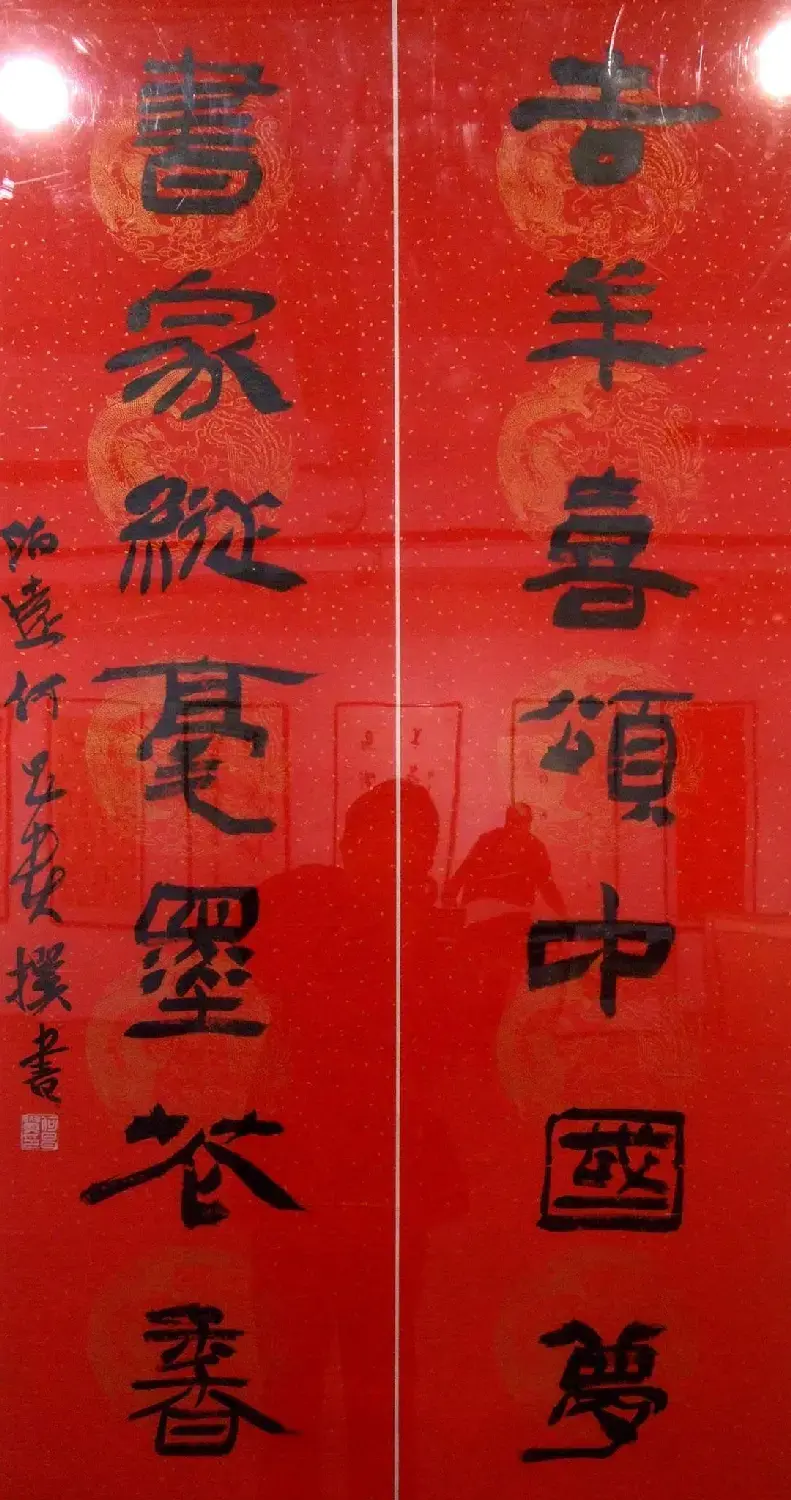 吉羊喜頌中國夢
書家縱毫墨花香
何 撰書